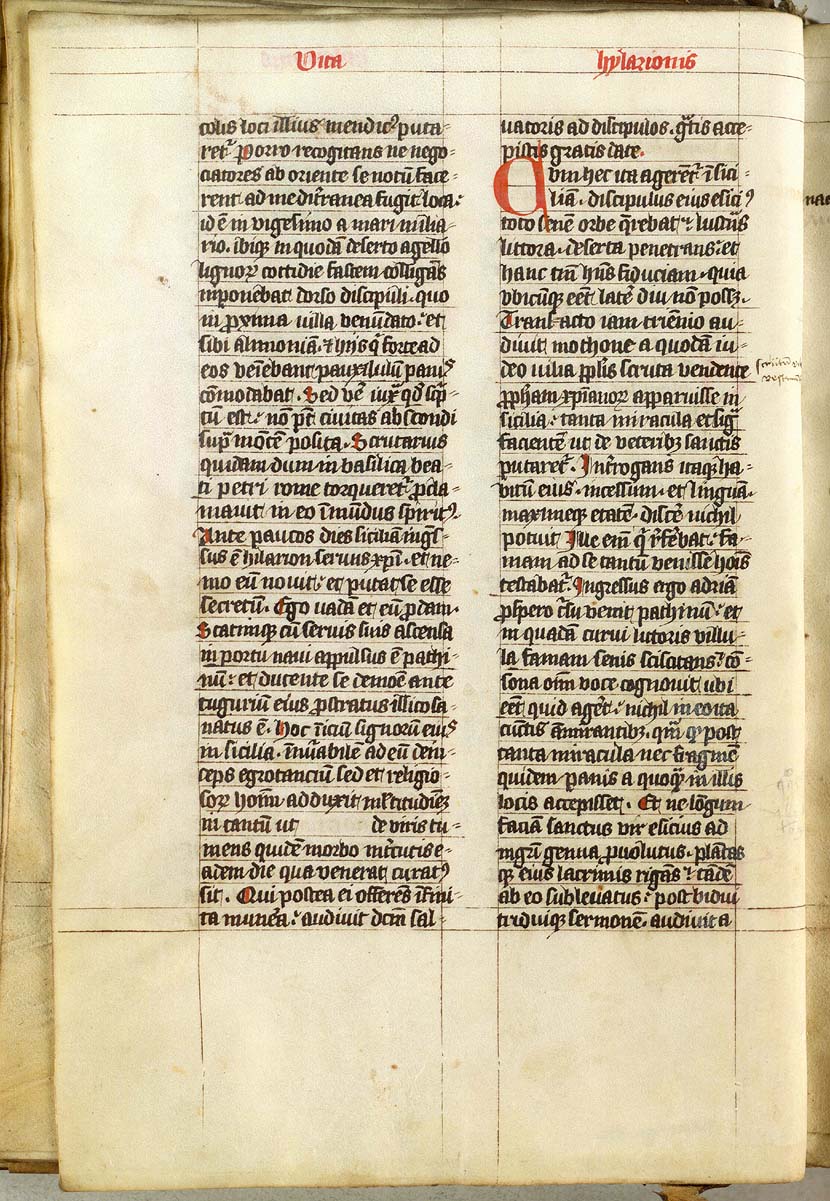 Vita hylarionis
colis loci illius mendic᷒ puta-
ret᷑ Porro recogitans ne nego-
ciatores ab oriente se notū face-
rent ad medit̄ranea fugit loca.
id ē in vigesimo a mari milia-
rio. ibiq; in quodā deserto agello
lignoꝝ cottidie fascem colligās
inponebat dorso discipuli. quo
in ꝓxima uilla venūdato. et
sibi alimoniā. ⁊ hijs q̄ forte ad
eos veīebant pauxlulum panis
cōmodabat. Sed ve͛ iuxͣ qd sc̄p-
tū est. nō pt̄ ciuitas abscondi
suꝑ mōtē posita. Scrutarius
quidam dum in basilica bea-
ti petri rome torqueret᷑ ꝓcla-
mauit in eo īmūdus spirit᷒.
Ante paucos dies siciliā īgs̄-
sus ē hilarion seruus xp̄i. et ne-
mo eū nouit. et putat se esse
secretū. Ego uadā et eū ꝓdam.
Statimq; cū seruis suis ascensa
in portu naui appulsus ē pachi-
nū. et ducente se demōe ante
tugurium eius ꝓstratus illico sa-
natus ē. Hoc īicium signorum ei᷒
in sicilia. īnūabilē ad eū dein-
ceps egrotancium sed et religio-
soꝝ hoīm adduxit mltitudinē
in tantū ut de viris tu-
mens quidē morbo int͛cutis e-
adem die qua venerat curat᷒
sit. Qui postea ei offerēs īfini-
ta munera. audiuit dc̄m sal-
uatoris ad discipulos. gͣtis acce-
pistis gratis date.
Cum hec ita ageret᷑ ī sici-
liā. discipulus eius esici᷒
toto senem orbe q̄rebat. lustrās
littora. deserta penetrans. et
hanc tm̄ hn̄s fiduciam. quia
vbicūq; eēt late͛ diu nō posset.
Transacto iam triēnio au-
diuit mothone a quodā iu-
deo uilia ppl̄is scruta vendente
ꝓpham xp̄ianoꝝ apparuisse in
sicilia. tanta miracula et signͣ
facientē ut de veterib; sanctis
putaret᷑. Int̄rogans itaq; ha-
bitū eius. incessum. et linguā.
maximeq; etatē. disce͛ nichil
potuit Ille em̄ qⁱ rēferebat. fa-
mam ad se tantū venisse hoīs
testabat᷑. Ingressus ergo adriā
ꝓspero cͥsu venit pachinū. et
in quadā curui littoris villu-
la famam senis sciscitans. cō-
sona oīm voce cognouit ubi
eēt quid age͛t. nichil in eo ita
cunctis āmirantib;. qm̄ q̊ post
tanta miracula nec fragmē
quidem panis a quoq̄ in illis
locis accepisset. Et ne lōgum
faciā sanctus vir esicius ad
mgr̄i genua ꝓuolutus. plātas
q; eius lacrimis rigās. tādē
ab eo subleuatus. post bidui
triduiq; sermonē. audiuit a